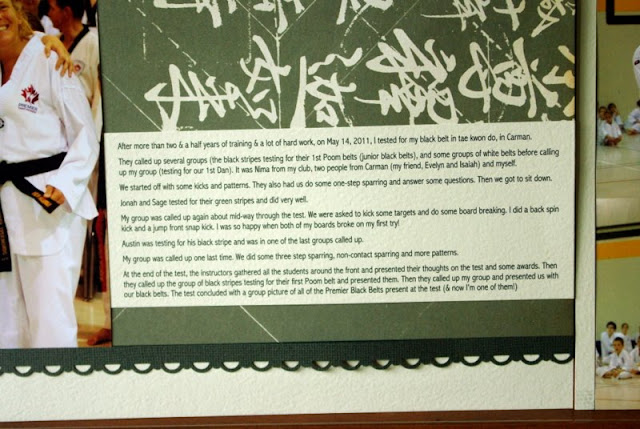 After more than two & a half years of training & a lot of hard work, on May 14, 2011, I tested for my black belt in tae kwon do, in Carman.
They called up several groups (the black stripes testing for their 1st Poom belts (junior black belts), and some groups of white belts before calling
up my group (testing for our 1st Dan). It was Nima from my club, two people from Carman (my friend, Evelyn and Isaiah) and myself.
We started off with some kicks and patterns. They also had us do some one-step sparring and answer some questions. Then we got to sit down.
Jonah and Sage tested for their green stripes and did very well.
My group was called up again about mid-way through the test. We were asked to kick some targets and do some board breaking. I did a back spin
kick and a jump front snap kick. I was so happy when both of my boards broke on my first try!
Austin was testing for his black stripe and was in one of the last groups called up.
My group was called up one last time. We did some three step sparring, non-contact sparring and more patterns.
At the end of the test, the instructors gathered all the students around the front and presented their thoughts on the test and some awards. Then
they called up the group of black stripes testing for their first Poom belt and presented them. Then they called up my group and presented us with
our black belts. The test concluded with a group picture of all of the Premier Black Belts present at the test (& now I'm one of them!)